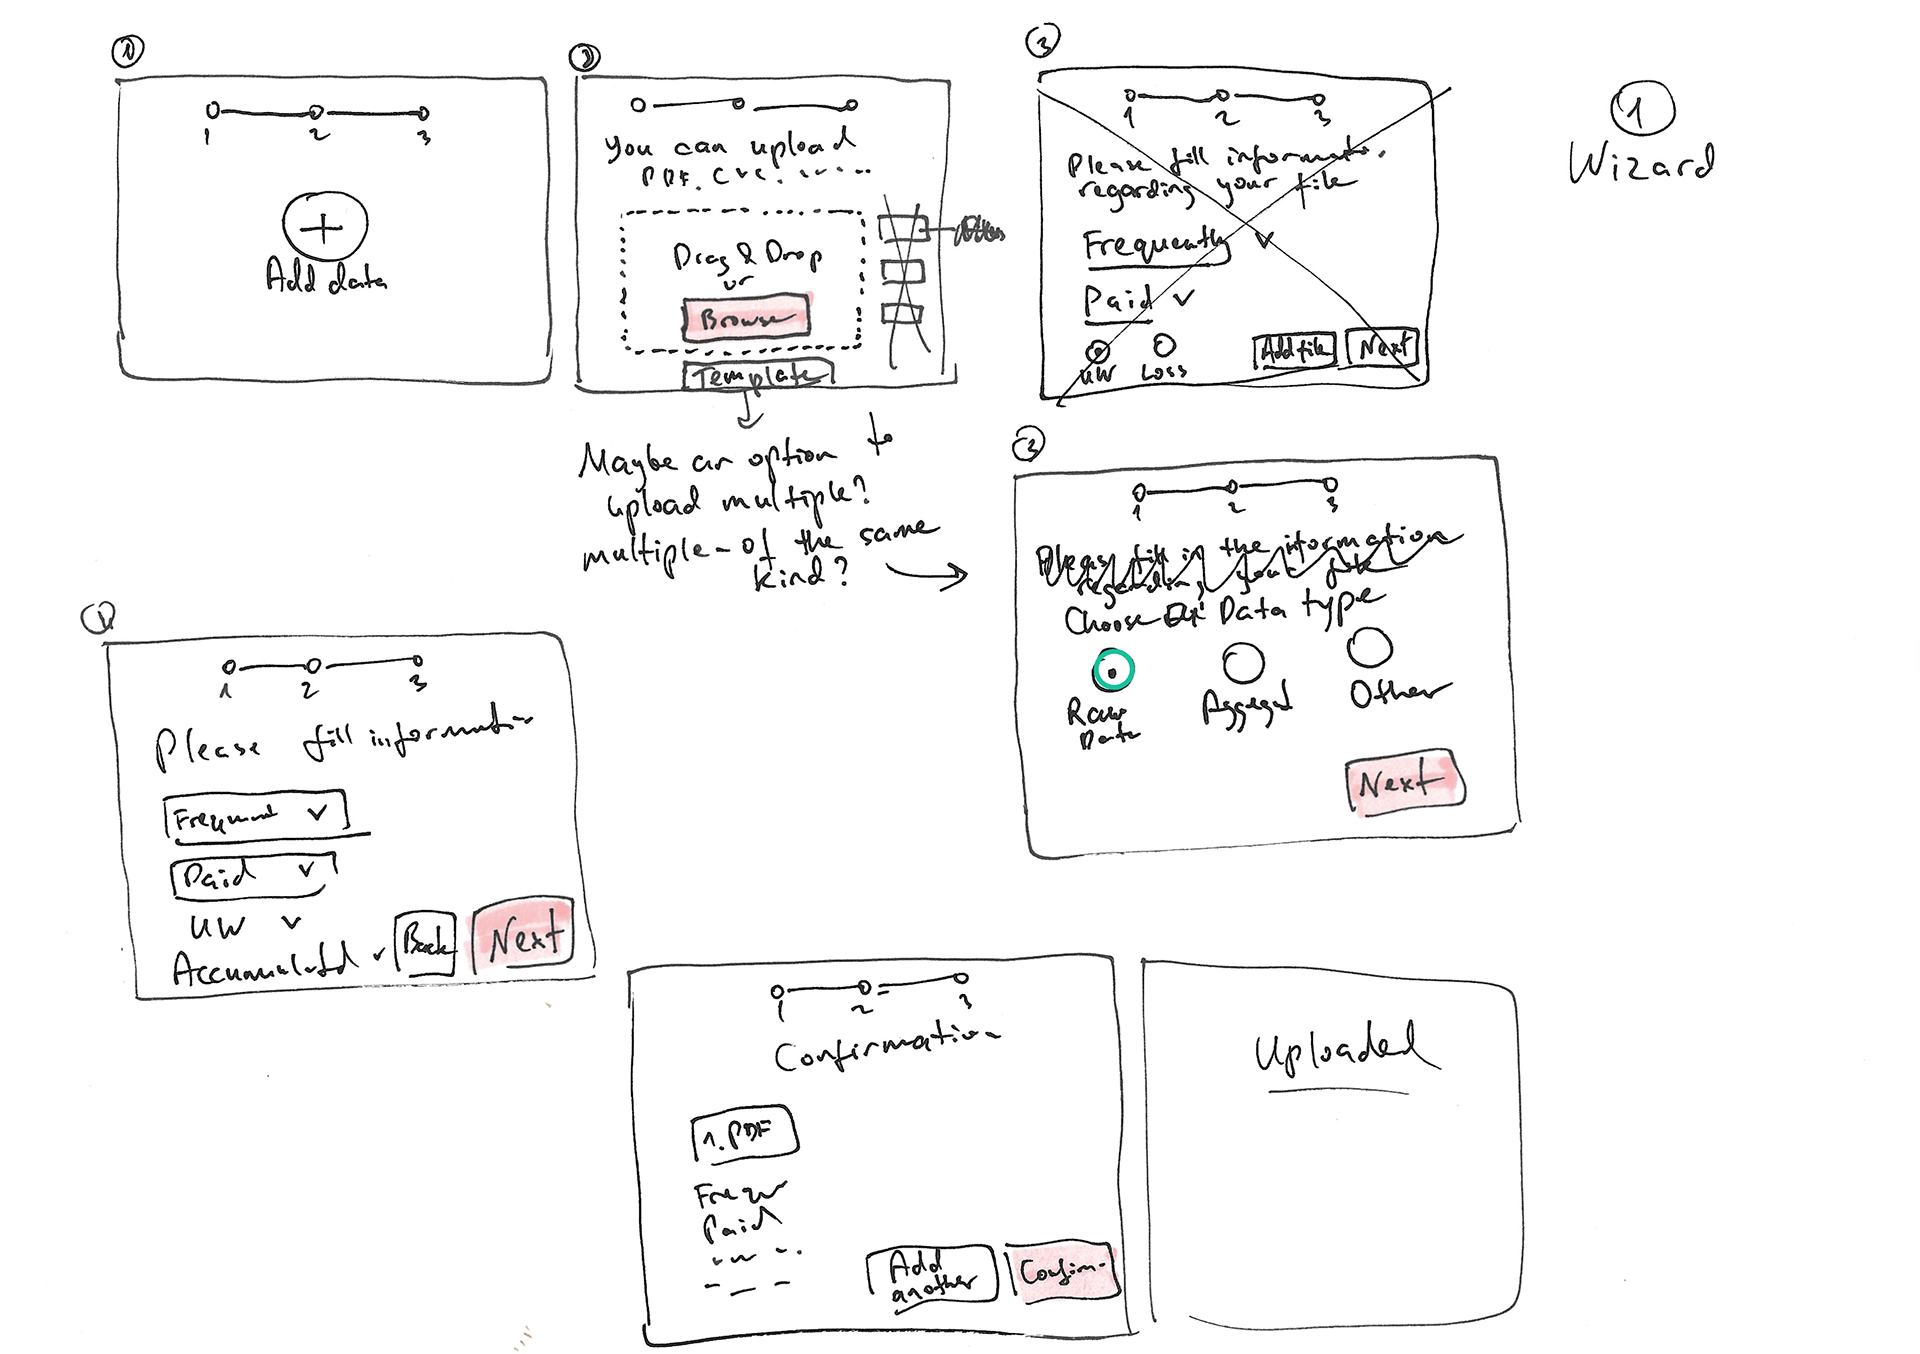 1
1 2 3
Add data
2
You can upload
PDF. CVC.
Drag & Drop
or
Browse
Template
Maybe an option to
upload multiple?
multiple - of the same
kind?
3
1 2 3
Please fill informatio.
regarding your file
Frequently
Paid
UW Loss
Add file Next
1
Wizard
3
1 2 3
Please fill in the information
regarding your file
Choose Data type
Raw
Data
Aggegat
Other
Next
1 2 3
Please fill information
Frequent
Paid
UW
Accumulatd
Back Next
1 2 3
Confirmation
1. PDF
Frequ
Paid
Add
another
Confirm
Uploaded